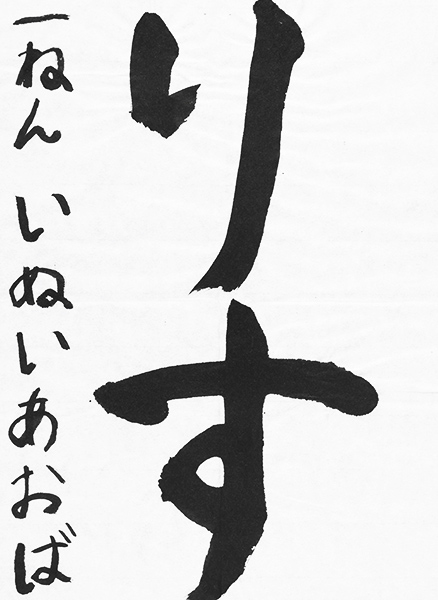 りす
一ねん いぬいあおば